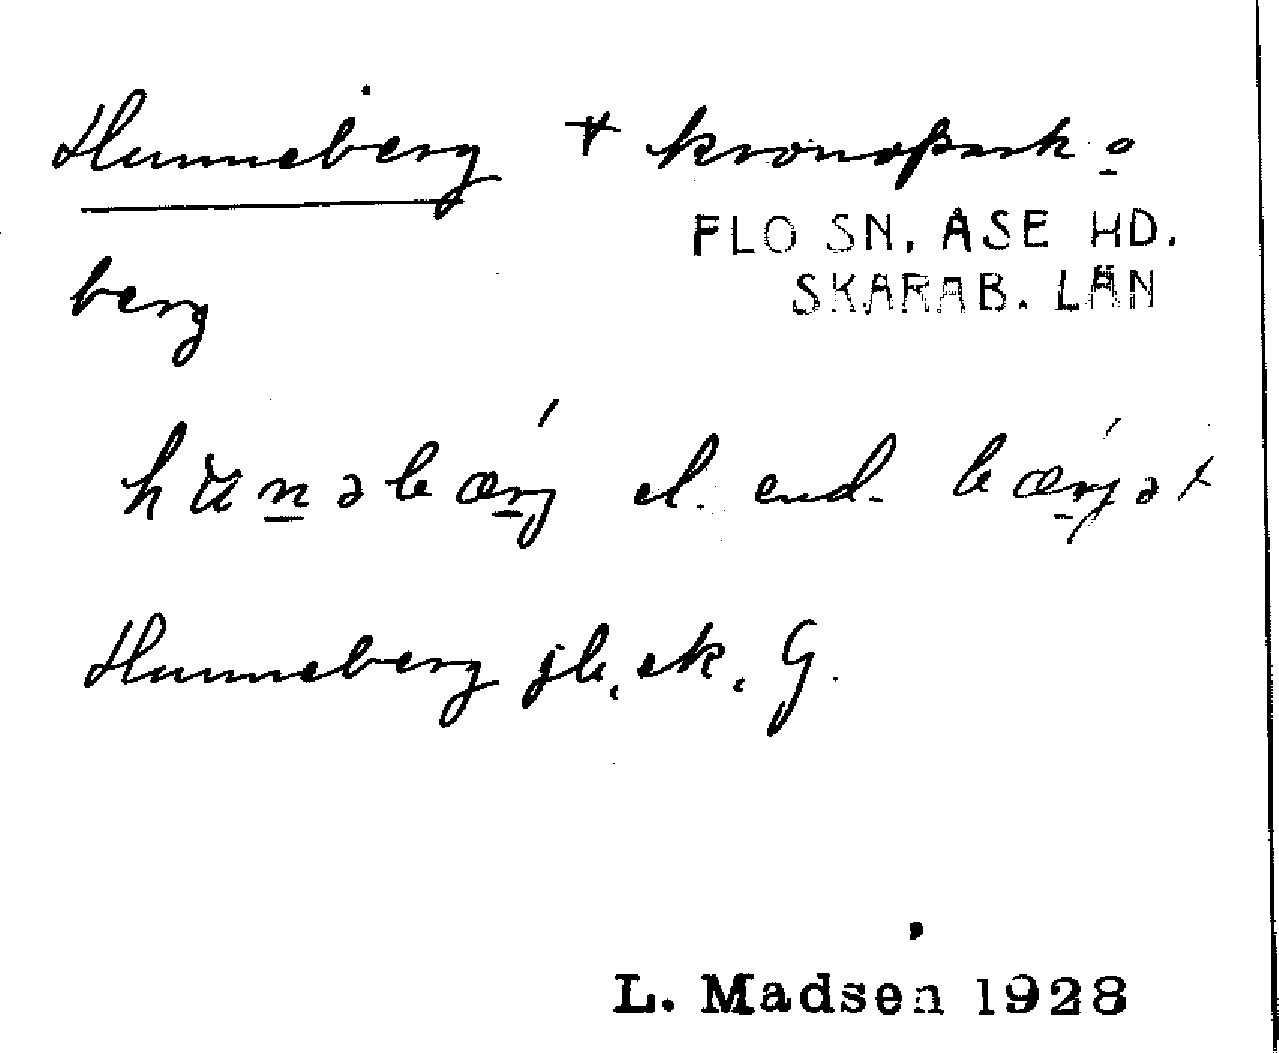 Hunneberg + kronopark o
FLO SN. ÅSE HD.
SKARAB. LÄN
berg
hunəbærj el. end. bærjət
Hunneberg jb, ek, G.
L. Madsen 1928